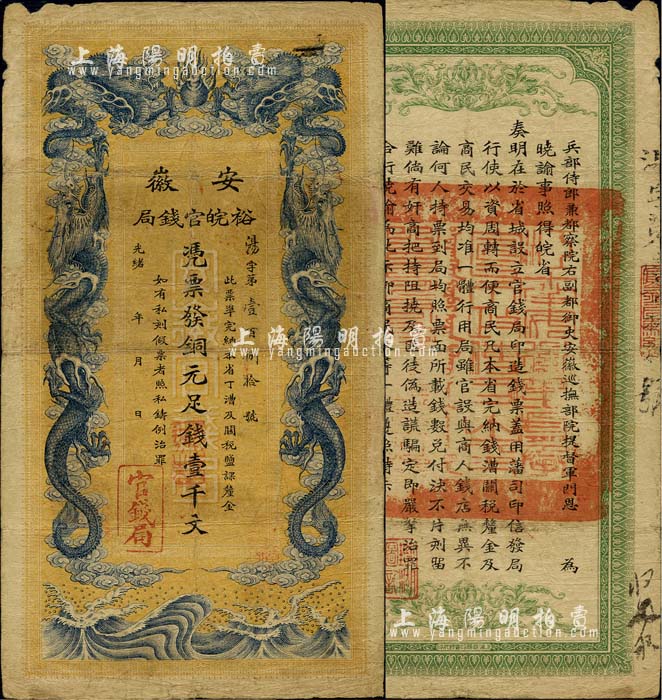 上海陽明拍賣
www.yangmingauction.com
安徽
裕皖官錢局
憑票發銅元足錢壹千文
此票準完納本省丁漕及關稅鹽課釐金
如有私刻假票者照私鑄例治罪
光緒 年 月 日
官錢局
上海陽明拍賣
www.yangmingauction.com
兵部侍郎兼都察院右副都御史安徽巡撫部院提督軍門恩 為
曉諭事照得皖省
奏明在於省城設立官錢局印造錢票蓋用藩司印信發局
行使以資周轉而便商民凡本省完納錢漕關稅釐金及
商民交易均准一體行用局雖官設與商人錢店無異不
論何人持票到局均照票面所載錢數兌付決不片刻留
難倘有奸商把持阻撓及
後偽造誆騙定即嚴拏治罪
上海陽明拍賣
www.yangmingauction.com